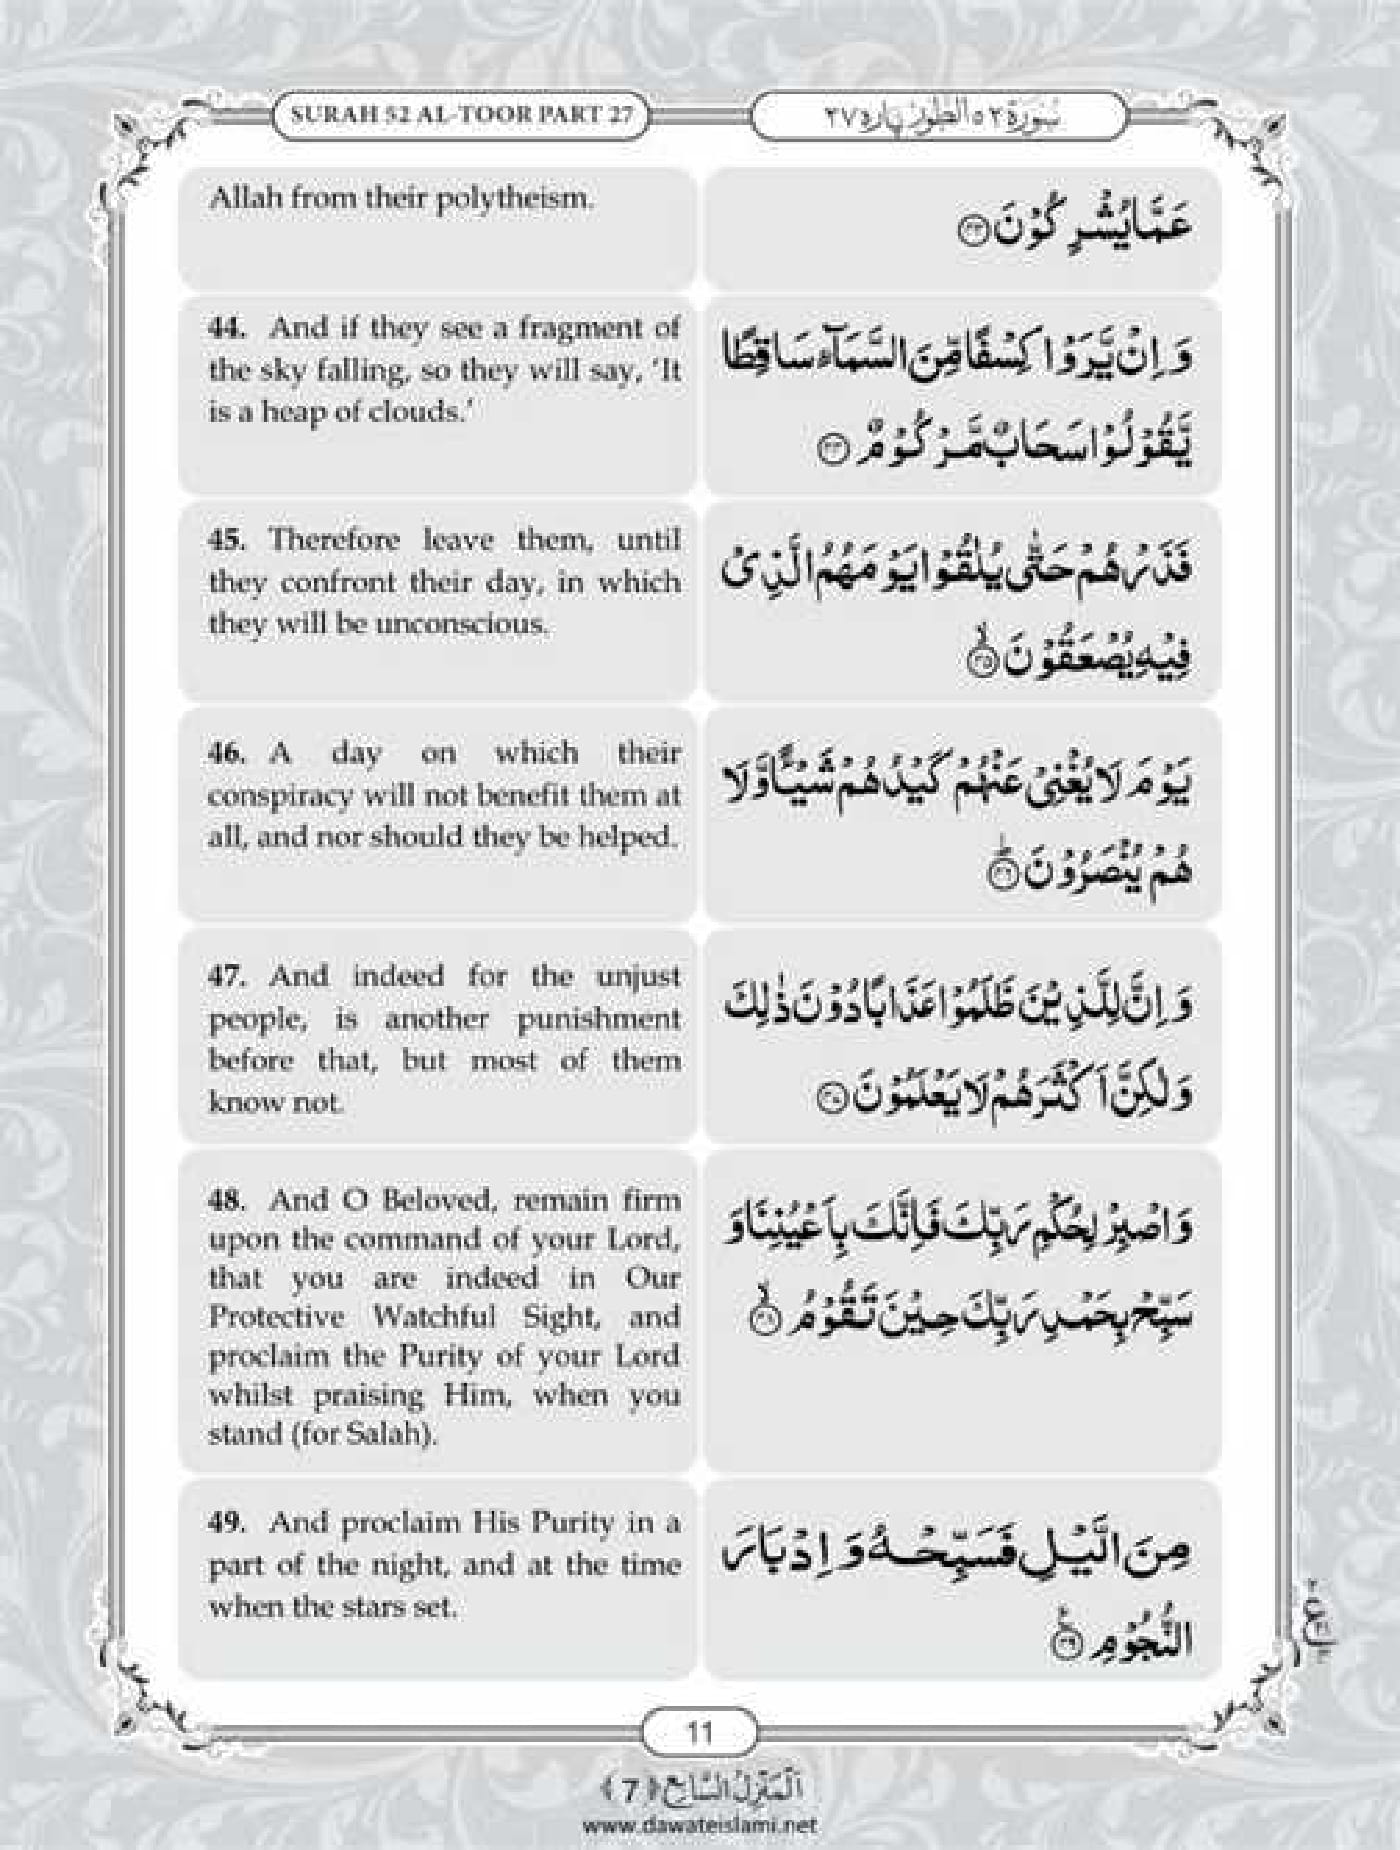 SURAH 52 AL-TOOR PART 27
سُوۡرَة ٥٢ الطُّوۡر پارہ ٢٧
Allah from their polytheism.
عَمَّا يُشْرِكُوْنَ ﴿٤٣﴾
44. And if they see a fragment of
the sky falling, so they will say, ‘It
is a heap of clouds.’
وَ اِنْ يَّرَوْا كِسْفًا مِّنَ السَّمَآءِ سَاقِطًا
يَّقُوْلُوْا سَحَابٌ مَّرْكُوْمٌ ﴿٤٤﴾
45. Therefore leave them, until
they confront their day, in which
they will be unconscious.
فَذَرْهُمْ حَتّٰى يُلٰقُوْا يَوْمَهُمُ الَّذِىْ
فِيْهِ يُصْعَقُوْنَ ﴿٤٥﴾ۙ
46. A day on which their
conspiracy will not benefit them at
all, and nor should they be helped.
يَوْمَ لَا يُغْنِىْ عَنْهُمْ كَيْدُهُمْ شَيْـًٔا وَّ لَا
هُمْ يُنْصَرُوْنَ ﴿٤٦﴾ؕ
47. And indeed for the unjust
people, is another punishment
before that, but most of them
know not.
وَ اِنَّ لِلَّذِيْنَ ظَلَمُوْا عَذَابًا دُوْنَ ذٰلِكَ
وَ لٰكِنَّ اَكْثَرَهُمْ لَا يَعْلَمُوْنَ ﴿٤٧﴾
48. And O Beloved, remain firm
upon the command of your Lord,
that you are indeed in Our
Protective Watchful Sight, and
proclaim the Purity of your Lord
whilst praising Him, when you
stand (for Salah).
وَ اصْبِرْ لِحُكْمِ رَبِّكَ فَاِنَّكَ بِاَعْيُنِنَا وَ
سَبِّحْ بِحَمْدِ رَبِّكَ حِيْنَ تَقُوْمُ ﴿٤٨﴾ۙ
49. And proclaim His Purity in a
part of the night, and at the time
when the stars set.
مِنَ الَّيْلِ فَسَبِّحْهُ وَ اِدْبَارَ
النُّجُوْمِ ﴿٤٩﴾
11
اَلْمَنْزِلُ السَّابِع ﴿7﴾
www.dawateislami.net